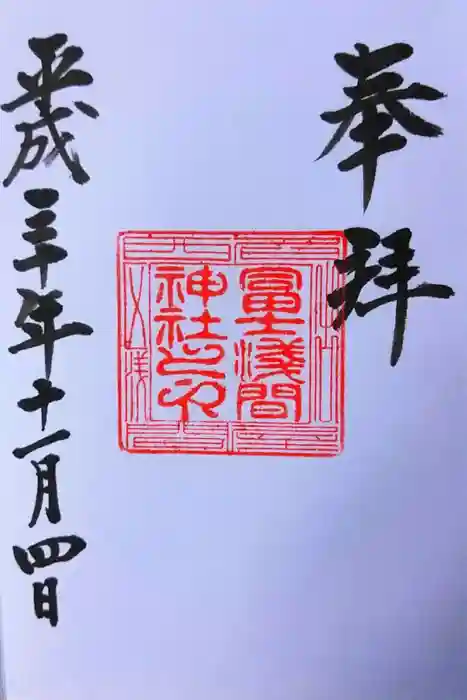 奉拝
富士浅間
神社之印
平成三十年十一月四日